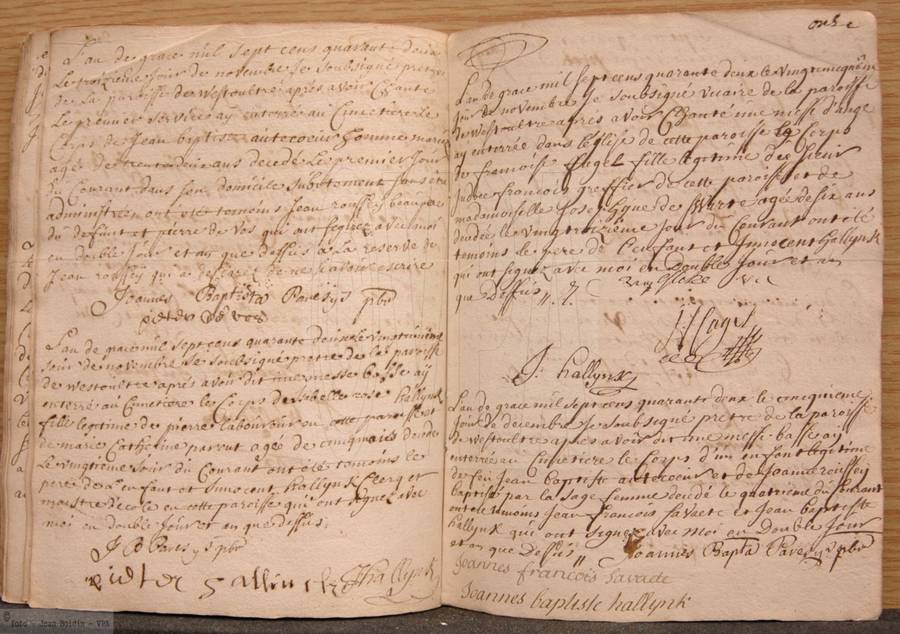 L'an de grace mil sept cens quarant deux
Le troizieme jour de novembre Je soubsigné pretre
de La paroisse de Westoultre apres avoir Chanté
Le premier service ay enterré au Cimetiere Le
Corps de Jean baptiste autecoeur homme marié
agé de trente deux ans decedé Le premier Jour
du Courant dans son domicile subitement sans etre
administré en ont eté temoins Jean roussey beaupere
du defunt et pierre de Vos qui ont signez avec moi
en double Jour et an que dessus a La reserve de
Jean roussey qui a declaré de ne scavoir escrire
Joannes Baptista Paresys pbr
pieter de vos
L'an de grace mil sept cens quarante deux le vingtieme
jour de novembre Je soubsigné pretre de la paroisse
de westoultre apres avoir dit une messe basse ay
interré au Cimetiere le Corps de isbelle rose hallynk
fille legitime de pierre Labourour en cette paroisse et
de marie Catherine parent agé de cinq mois decedé
Le vingtieme Jour du Courant ont eté temoins le
pere de L'enfant et Innocent hallynk Clercq et
maistre d'ecole en cette paroisse qui ont signez avec
moi en double Jour et an que dessus
J B Paresys pbr
pieter hallinck J hallynk
onze
L'an de grace mil sept cens quarante deux le vingtiemequatrieme
jour de novembre Je soubsigné vicaire de la paroisse
de Westoultre apres avoir Chanté une messe d'ange
ay enterrée dans l'Eglise de cette paroisse le Corps
de francoise fille legitime du sieur
francois greffier de cette paroisse et de
mademoiselle Josephque de agée de six ans
decedée le vingt troizieme jour du Courant ont eté
temoins le pere de l'enfant et Innocent hallynk
qui ont signez avec moi en double Jour et an
que dessus
J: hallynk
L'an de grace mil sept cens quarante deux le cinquieme
jour de decembre Je soubsigné pretre de la paroisse
de Westoultre apres avoir dit une messe basse ai
interré au Cimetiere le Corps d'un enfant legitime
de feu Jean baptiste autecoeur et de Jeanne roussey
baptisé par la sage femme decedé le quatrieme du Courant
ont eté temoins Jean francois Savaete et Jean baptiste
hallynk qui ont signez avec moi en Double Jour
et an que Dessus Joannes Bapta Paresys pbr
Joannes francois Savaete
Joannes baptiste hallynk
© foto - Jean Boidin - VPA